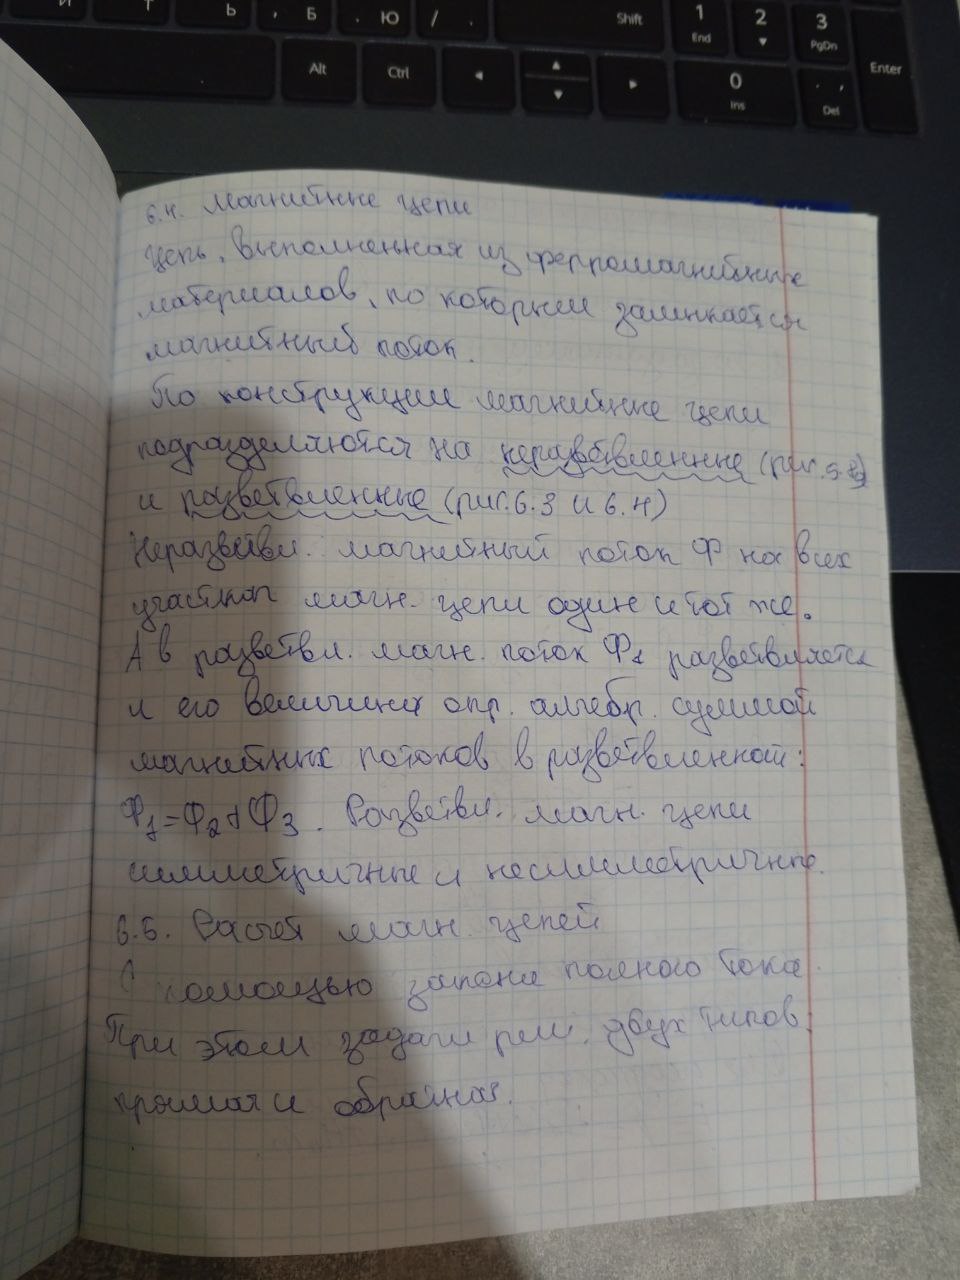 Ь
Б
Ю
/
Shift
1
End
2
3
PgDn
Enter
Alt
Ctrl
0
Ins
Del
6.4. Магнитные цепи
Цепь, выполненная из ферромагнитных
материалов, по которым замыкается
магнитный поток.
По конструкции магнитные цепи
подразделяются на неразветвленные (рис.
и разветвленные (рис. 6.3 и 6.4)
Неразветвл. магнитный поток Ф на всех
участках магн. цепи один и тот же.
А в разветвл. магн. поток Ф1 разветвляется
и его величина опр. алгебр. суммой
магнитных потоков в разветвленной:
Ф1=Ф2+Ф3. Разветвл. магн. цепи
симметричные и несимметричные.
6.5. Расчёт магн. цепей
С помощью закона полного тока.
При этом задачи реш. двух типов:
прямая и обратная.